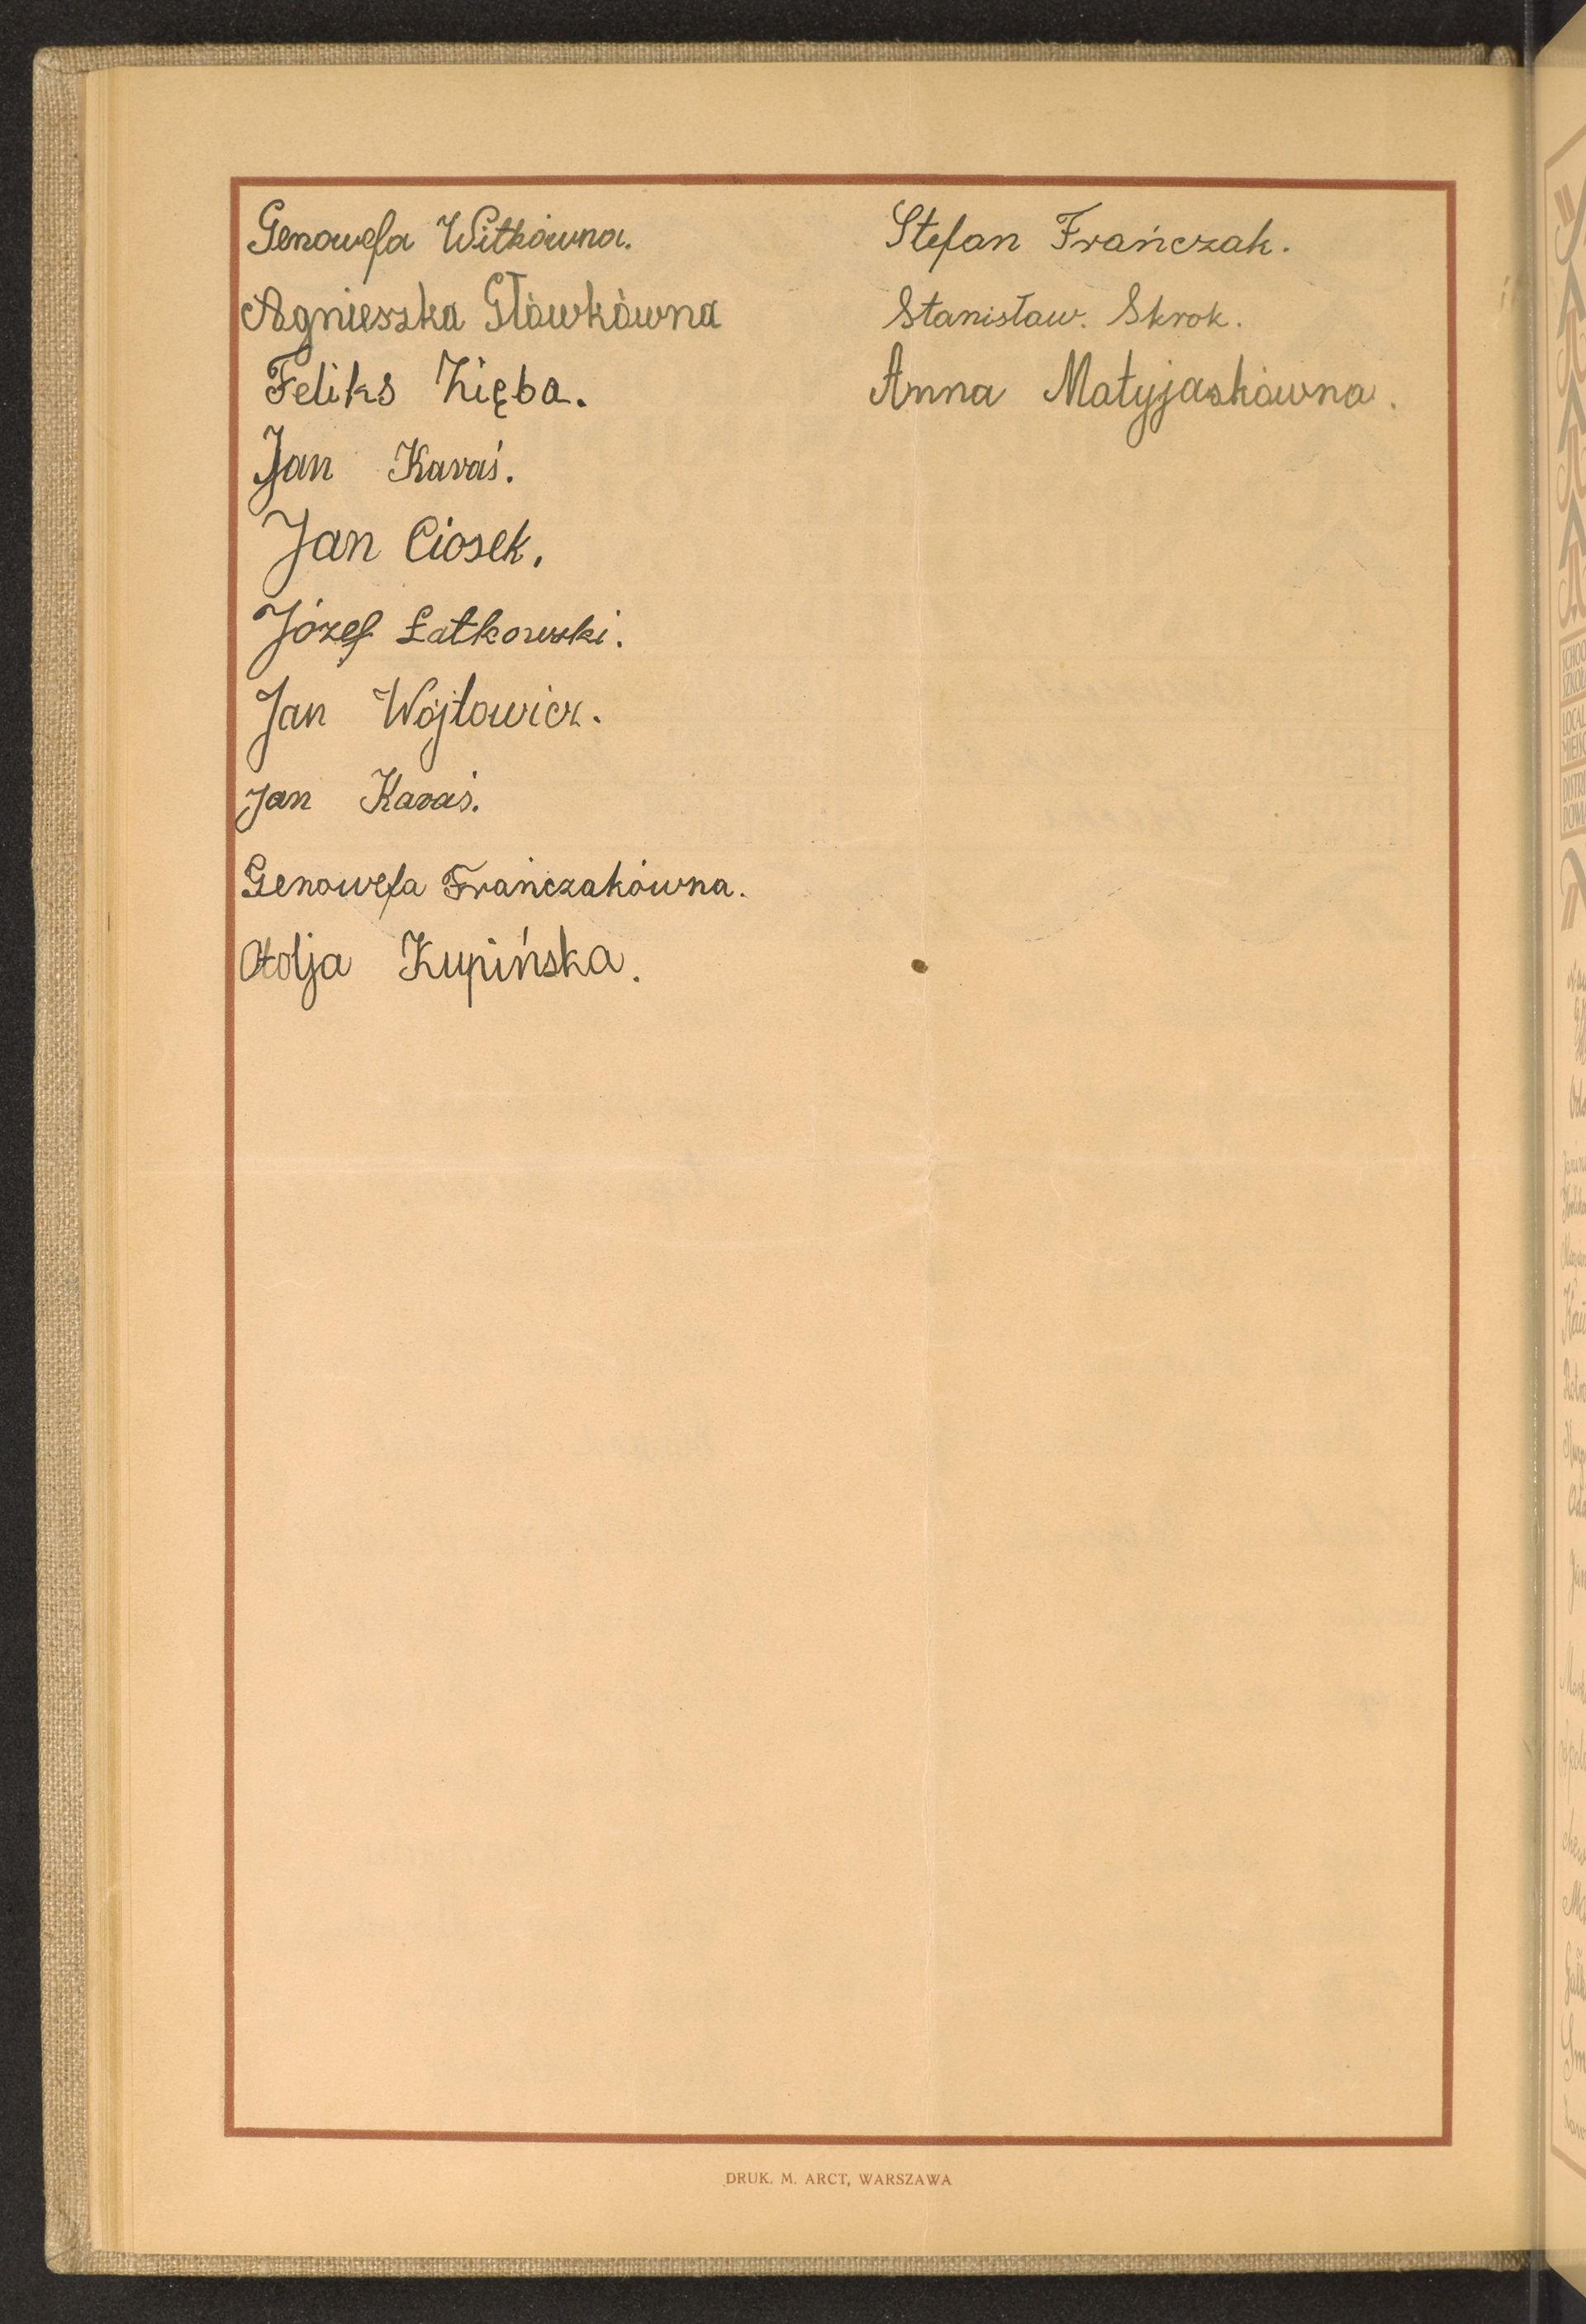 Genowefa Witkówna.
Agnieszka Główkówna
Feliks Zięba.
Jan Karaś.
Jan Ciosek.
Józef Łatkowski.
Jan Wójtowicz.
Jan Karaś.
Genowefa Frańczakówna.
Kupińska.
Stefan Frańczak.
Stanisław. Skrok.
Anna Matyjaskówna.
DRUK. M. ARCT, WARSZAWA